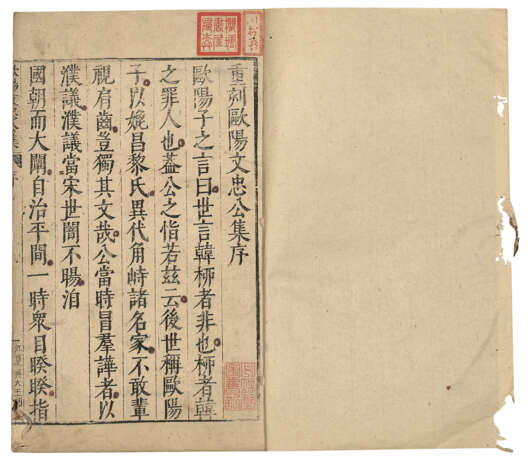 重刻歐陽文忠公集序
歐陽子之言曰世言韓栁者非也栁者韓
之罪人也葢公之恉若兹云後世稱歐陽
子以媲昌黎氏異代角峙諸名家不敢輩
視有齒豈獨其文哉公當時冒羣譁者以
濮議濮議當宋世闇不暘洎
國朝而大闡自治平間一時衆目睽睽指